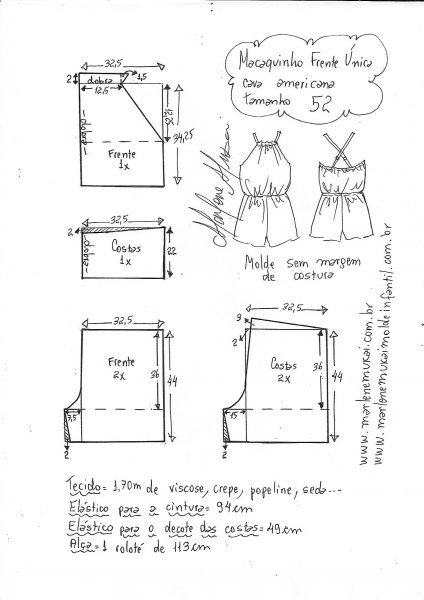 Macaquinho Frente Única
cava americana
tamanho 52
32,5
2
dobra
1,5
12,5
dobra
34,25
Frente
1x
Marlene Mukai
32,5
2
dobra
Costas
1x
22
Molde sem margem
de costura
32,5
Frente
2x
36
44
7,5
2
32,5
3
2
Costas
2x
36
44
15
2
www.marlenemukai.com.br
www.marlenemukaimoldeinfantil.com.br
Tecido= 1,70m de viscose, crepe, popeline, seda...
Elástico para a cintura= 94cm
Elástico para o decote das costas= 49cm
Alça= 1 rolotê de 113cm